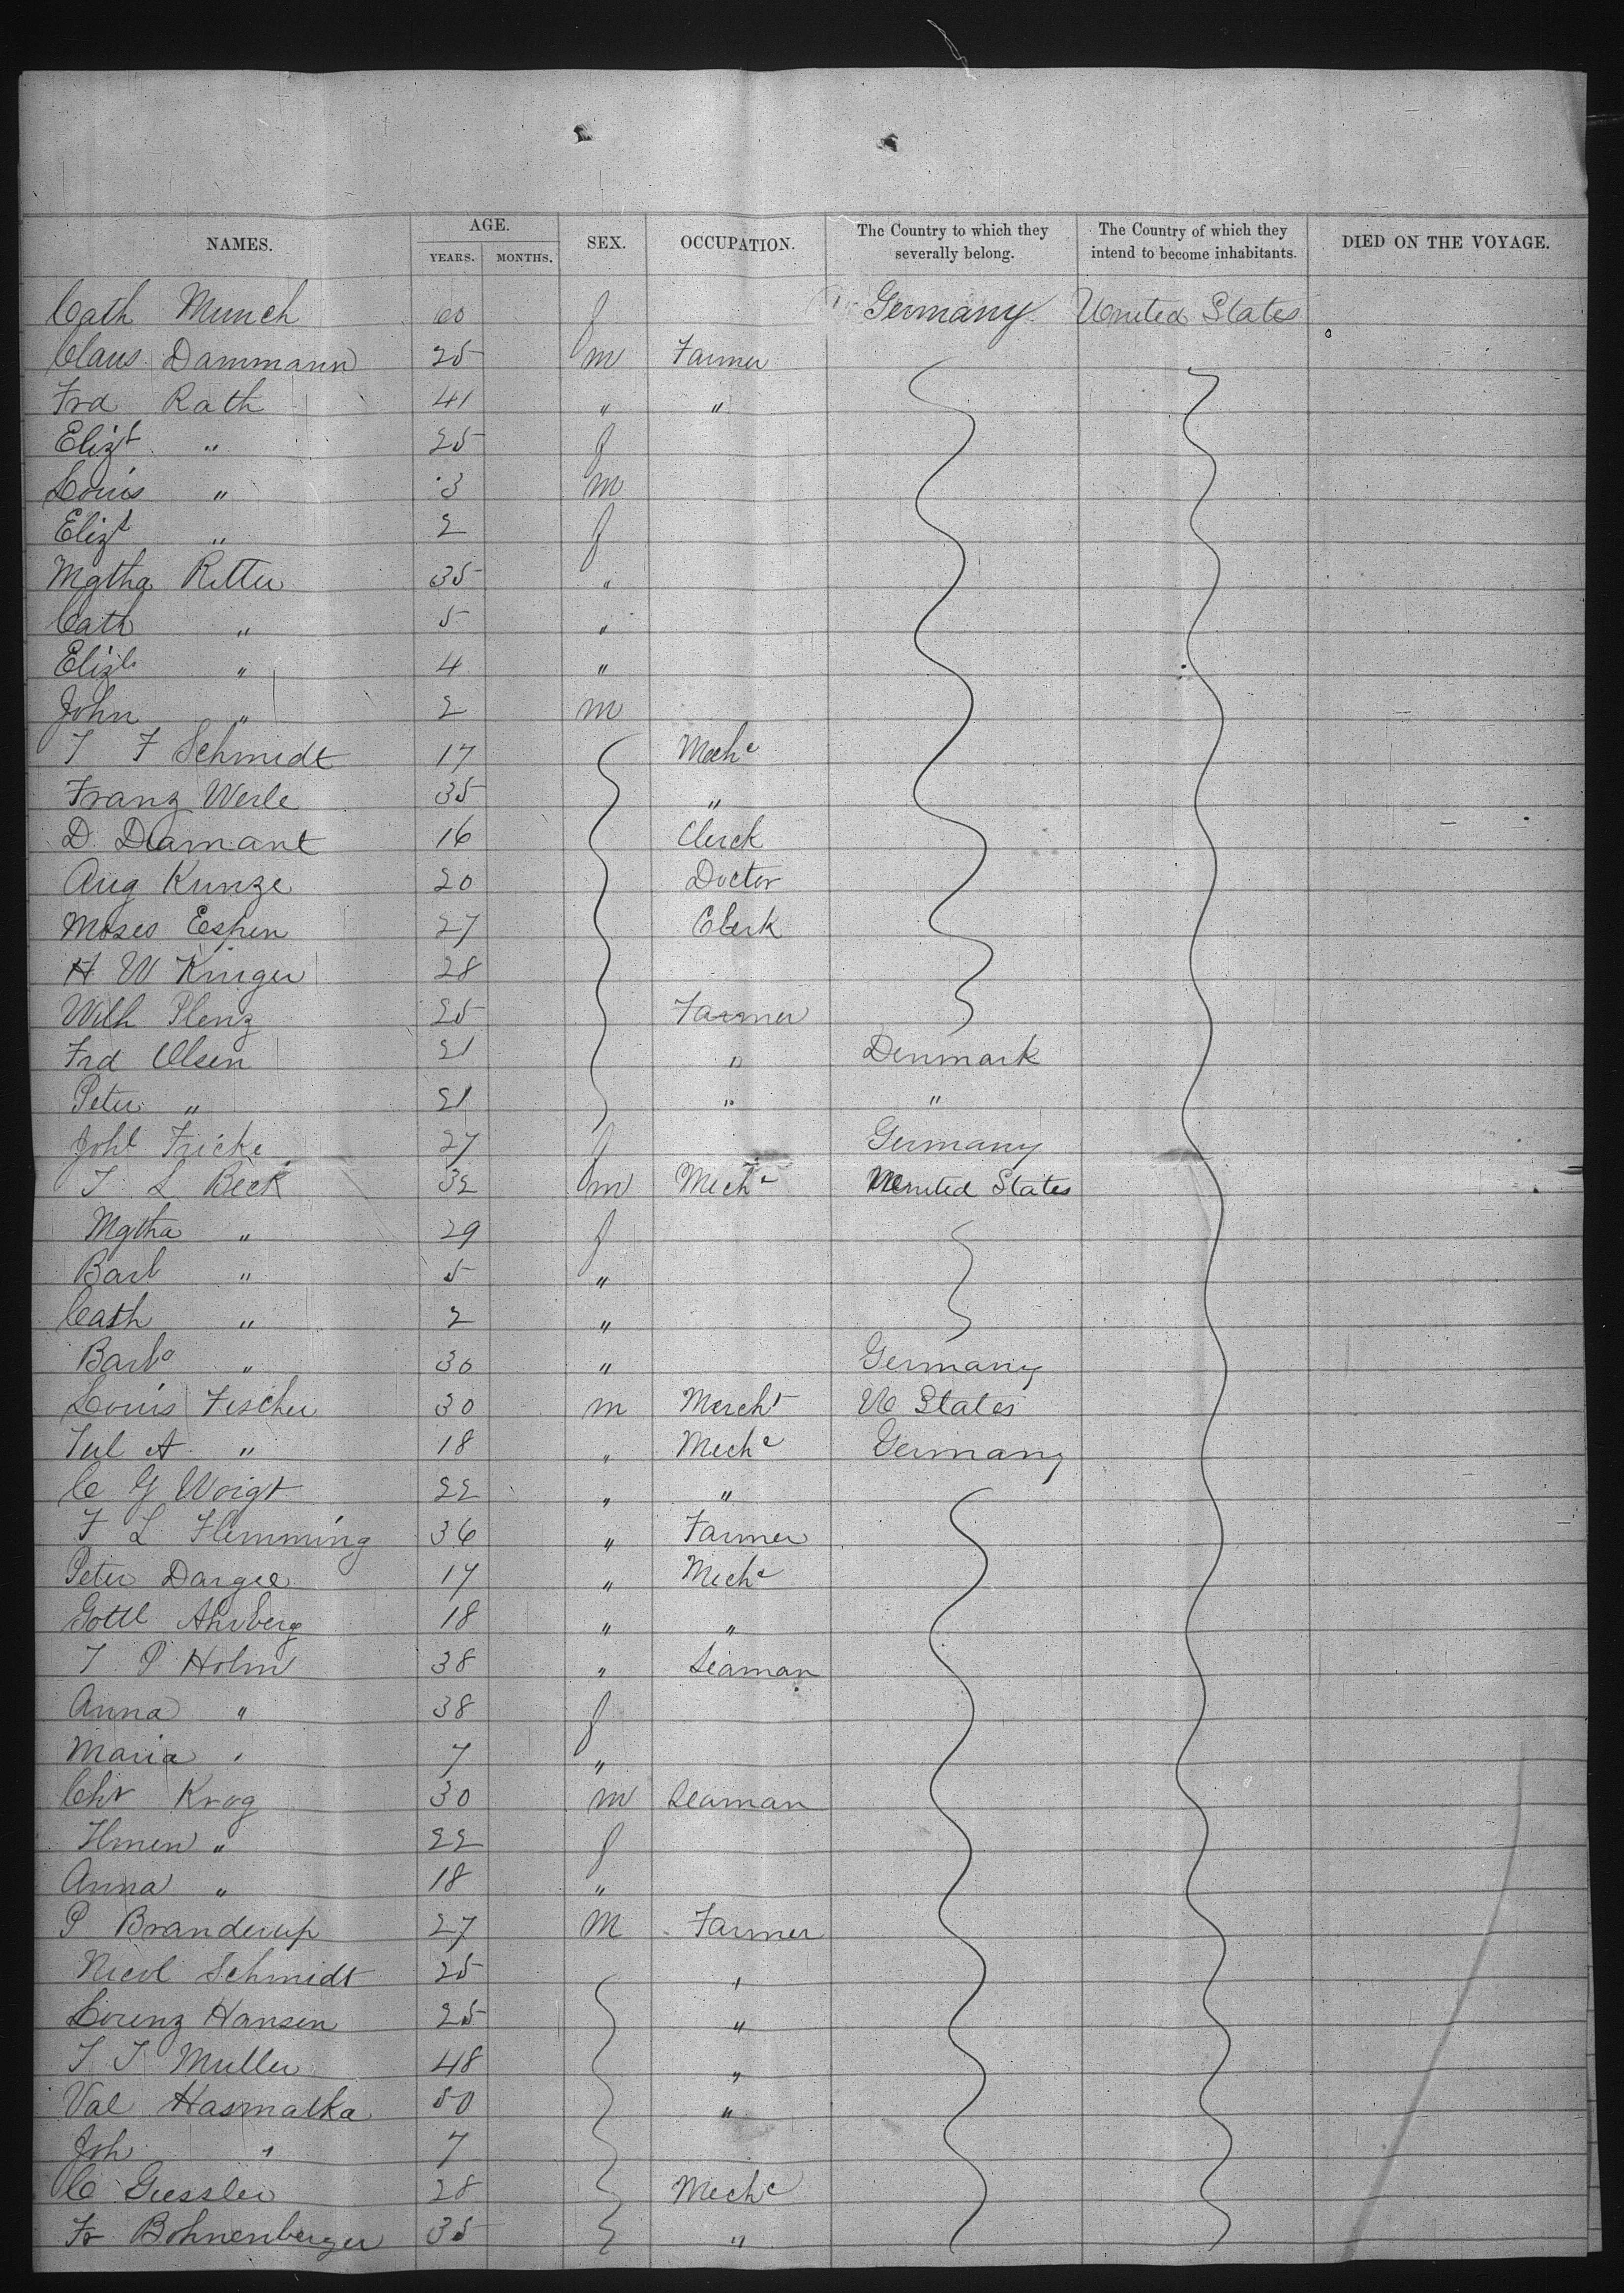 NAMES. AGE. SEX. OCCUPATION. The Country to which they severally belong. The Country of which they intend to become inhabitants. DIED ON THE VOYAGE.
YEARS. MONTHS.
Cath Munch 60 f Germany United States
Claus Dammann 25 m Farmer
Frd Rath 41 " "
Elizt " 25 f
Louis " 3 m
Elizt " 2 f
Mgtha Ritter 35 "
Cath " 5 "
Elizb " 4 "
John " 2 m
J F Schmidt 17 Mechc
Franz Werle 35 "
D. Diamant 16 Clerck
Aug Kunze 20 Doctor
Moses Espen 27 Clerk
H W Kruger 28
Wilh Plenz 25 Farmer
Frd Olsen 21 " Denmark
Peter " 21 " "
Johl Fricke 27 f Germany
J L Beck 32 m Mechc United States
Mgtha " 29 f
Barb " 5 "
Cath " 2 "
Barba " 30 " Germany
Louis Fischer 30 m Mercht U States
Jul A " 18 " Mechc Germany
C G Woigt 22 " "
F L Flemming 36 " Farmer
Peter Dargel 17 " Mechc
Gottl Ahrberg 18 " "
J P Holm 38 " Seaman
Anna " 38 f
Maria " 7 "
Chr Krog 30 m Seaman
" 22 f
Anna " 18 "
P Branderup 27 M Farmer
Nicol Schmidt 25 "
Lorenz Hansen 25 "
J J Muller 48 "
Val Hasmatka 50 "
Joh " 7
C Giessler 28 Mechc
Fr Bohnenberger 35 "